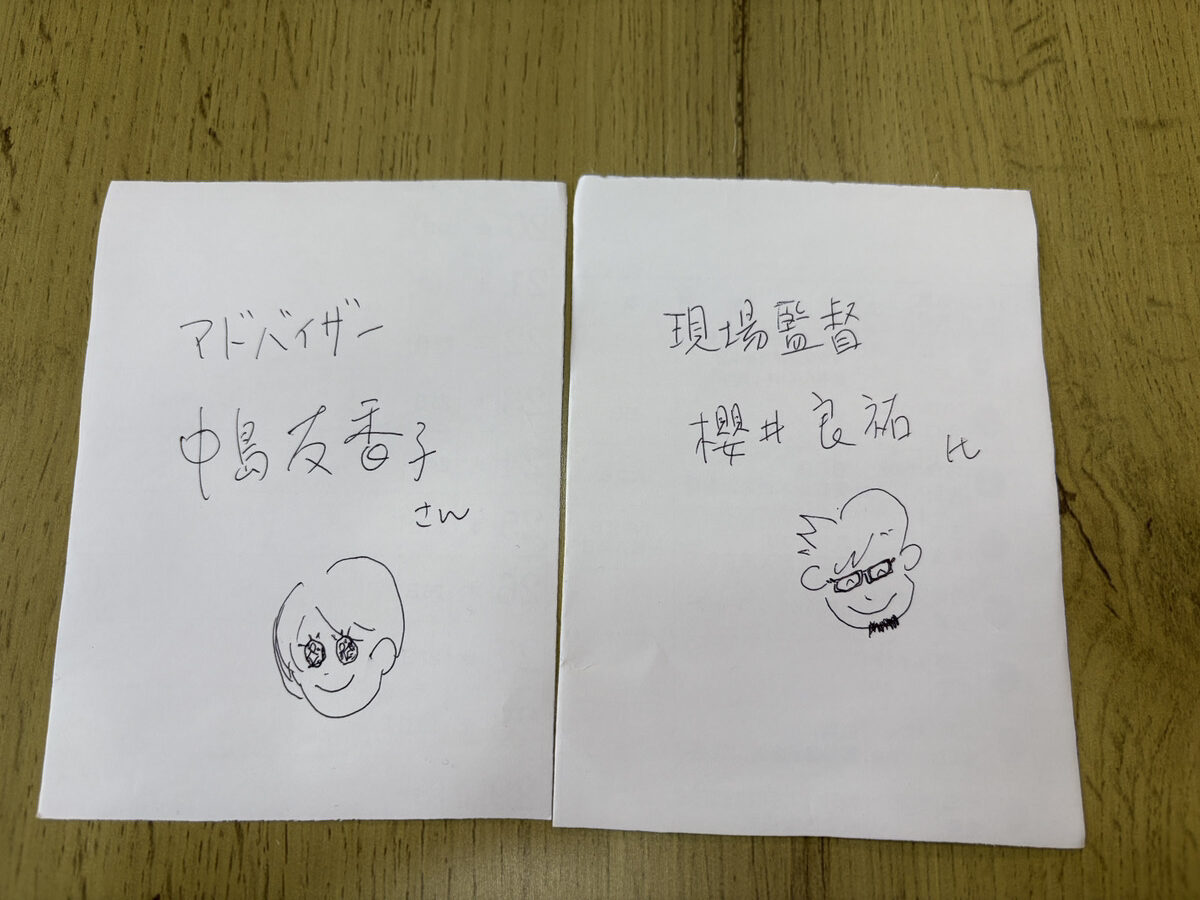 アドバイザー
中島友香子
さん
現場監督
櫻井良祐 氏